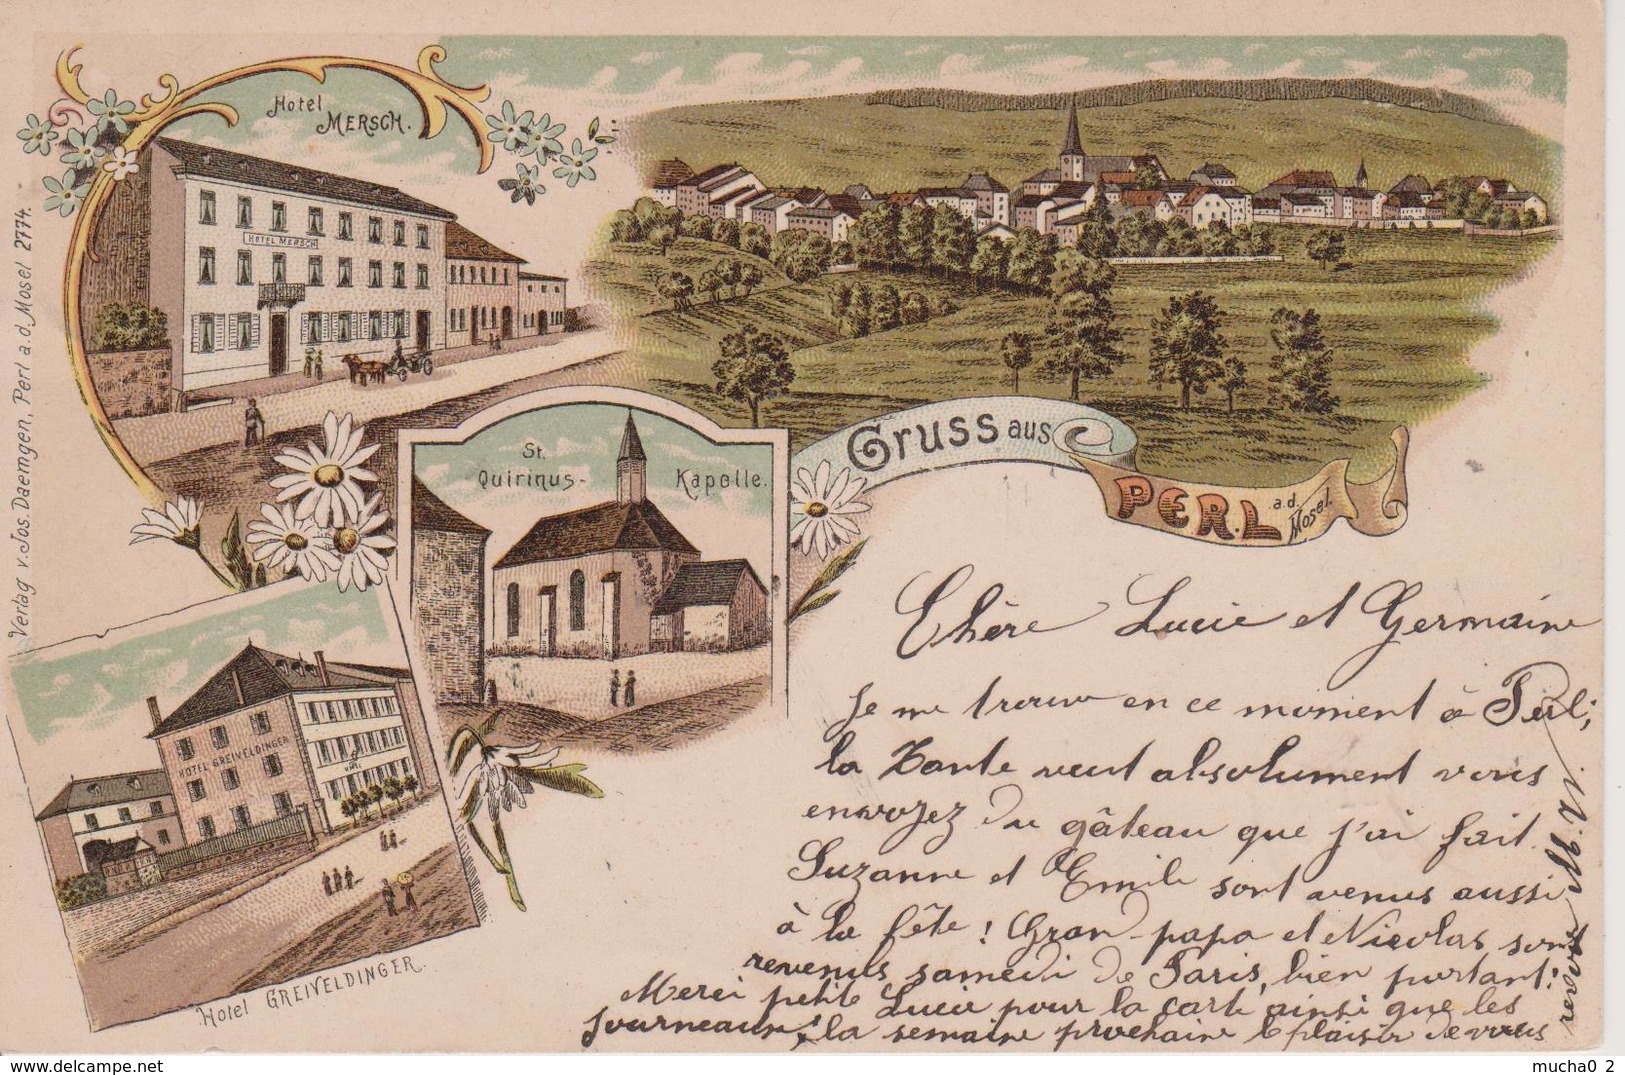 Hotel
MERSCH.
HOTEL MERSCH
Verlag v. Jos. Daemgen, Perl a. d. Mosel 2774.
St.
Quirinus- Kapelle.
Gruss aus
PERL a.d. Mosel.
HOTEL GREIVELDINGER
Hotel GREIVELDINGER.
Chère Lucie et Germaine
Je me trouve en ce moment à Perl;
la Tante veut absolument vous
envoyez du gâteau que j'ai fait.
Suzanne et Emile sont venus aussi
à la fête! Gran-papa et Nicolas sont
revenus samedi de Paris, bien portant!
Merci petite Lucie pour la carte ainsi que les
journeaux; la semaine prochaine le plaisir de vous
revoir
mucha0 2